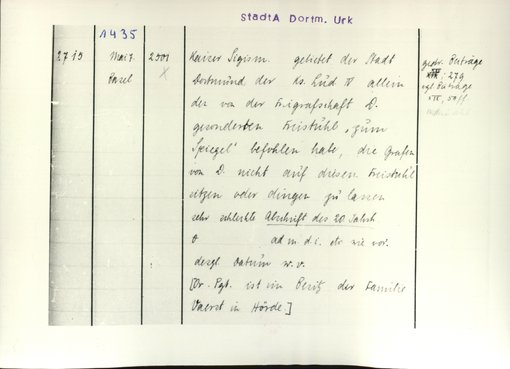 StadtA Dortm. Urk
1435
2715 Mai 7. 2501 Kaiser Sigism. gebietet der Stadt
Basel X Dortmund der Ks. Lud IV allein
der von der Freigrafschaft D.
gesonderten Freistuhl "zum
Spiegel" befohlen habe, die Grafen
von D. nicht auf diesen Freistuhl
sitzen oder dingen zu lassen
sehr schlechte Abschrift des 20. Jahrh
ad m. d. i. etc wie vor.
desgl. Datum w. v.
[Or. Pgt. ist im Besitz der Familie
Vaerst in Hörde.]
gedr. Beiträge
279
vgl Beiträge
III, 50 ff.